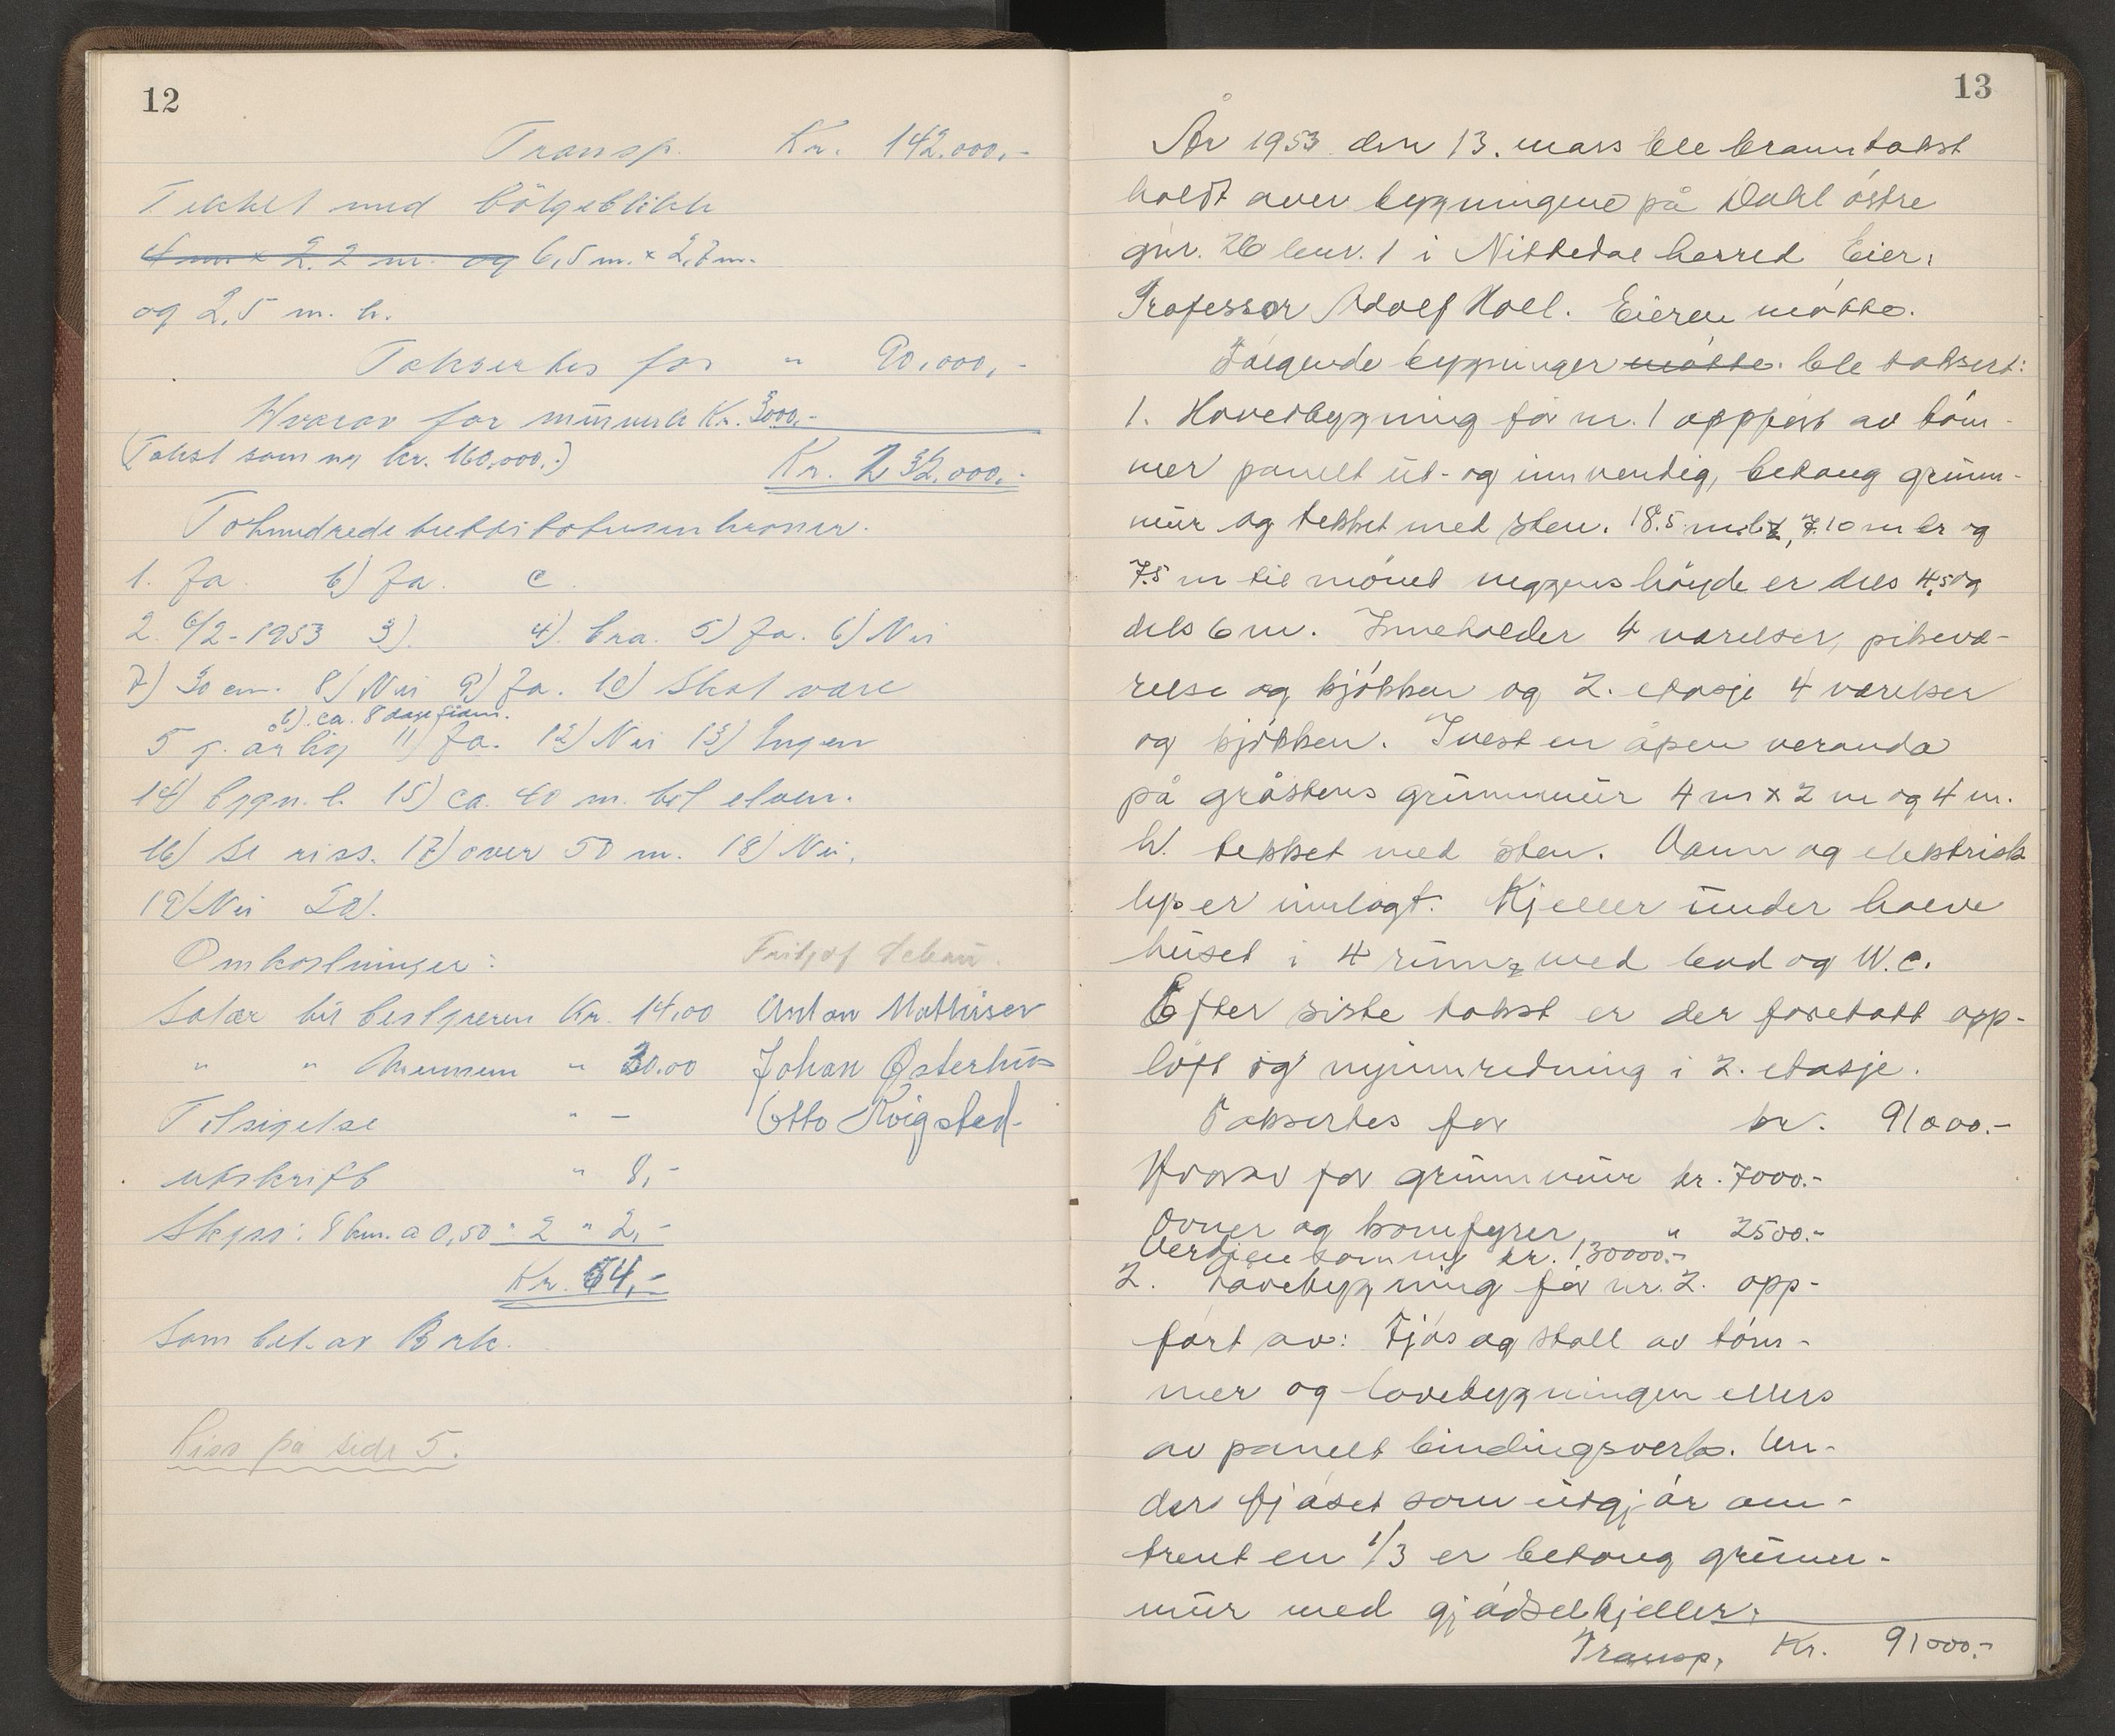 12
Transp. Kr. 142.000,-
Tekket med bölgeblikk
4 m × 2.2 m. og 6,5 m. × 2,7 m.
og 2,5 m. h.
Takseres for " 90,000,-
Hvorav for murverk Kr. 3000,-
(Takst som ny kr. 160.000.-)
Kr. 232.000,-
Tohundredetrettitotusenkroner.
1. Ja. b) Ja. c
2. 6/2-1953 3). 4). bra. 5) Ja. 6) Nei
7) 30 cm. 8) Nei 9) Ja. 10) Skal være
b). ca. 8 dage siden.
5 g. årlig 11) Ja. 12) Nei 13) Ingen
14) bygn. l. 15) ca. 40 m. til elven.
16) Se riss. 17) over 50 m. 18) Nei,
19) Nei 20.
Omkostninger: Fritjof
Salær til bestyreren Kr. 14,00 Anton Mathisen
" " Mennene " 30.00 Johan Østerhus
Tilsigelse " - Otto Kvigstad
utskrift " 8,-
Skyss: 8 km. a 0,50 " 2 " 2,-
Kr. 54,-
Som bet. av Brk.
Riss på side 5.
13
År 1953 den 13. mars ble branntakst
holdt over bygningene på Dahl östre
gnr. 26 bnr. 1 i Nittedal herred Eier:
Professor Adolf Hoel. Eieren mötte.
Fölgende bygninger mötte. ble taksert:
1. Hovedbygning för nr. 1 oppfört av töm-
mer panelt ut- og innvendig, betong grunn-
mur og tekket med sten. 18.5 m l, 7.10 m br og
7.5 m til mönet veggens höyde er dels 4,5 og
dels 6 m. Inneholder 4 værelser, pikevæ-
relse og kjökken og 2. etasje 4 værelser
og kjökken. I vest en åpen veranda
på gråstens grunnmur 4 m x 2 m og 4 m.
h. tekket med sten. Vann og elektrisk
lys er innlagt. Kjeller under halve
huset i 4 rum med bad og W.c.
Efter siste takst er der foretatt opp-
löft og nyinnredning i 2. etasje.
Takseres for kr. 91000.-
Hvorav for grunnmur kr. 7000.-
Ovner og komfyrer " 2500.-
Verdien som ny kr. 130000.-
2. Låvebygning för nr. 2. opp-
fört av: Fjös og stall av töm-
mer og lovebygningen ellers
av panelt bindingsverk. Un-
der fjöset som utgjör om-
trent en 1/3 er betong grunn-
mur med gjödselkjeller.
Transp. Kr. 91000.-